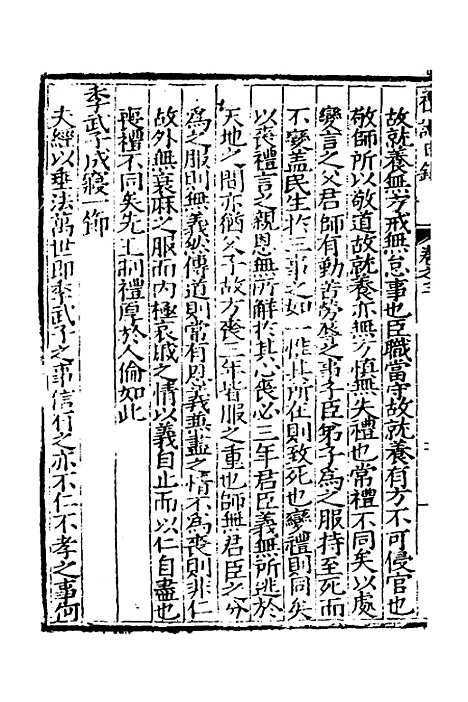 故就養無方戒無怠事也臣職當守故就養有方不可侵官也
敬師所以敬道故就養亦無方慎無失禮也常禮不同矣以處
變言之父君師有勤苦勞辱之事子臣弟子為之服持至死而
不變盖民生於三事之如一惟其所在則致死也變禮則同矣
以喪禮言之親恩無所解於其心喪必三年君臣義無所逃於
天地之間亦猶父子故方喪三年皆服之重也師無君臣之分
為之服則無義然傳道則常有恩義兼盡之情不為喪則非仁
故外無衰麻之服而内極哀戚之情以義自止而以仁自盡也
喪禮不同矣先王制禮厚於人倫如此
季武子成寢一節
夫經以垂法萬世即季武子之事信行之亦不仁不孝之事何